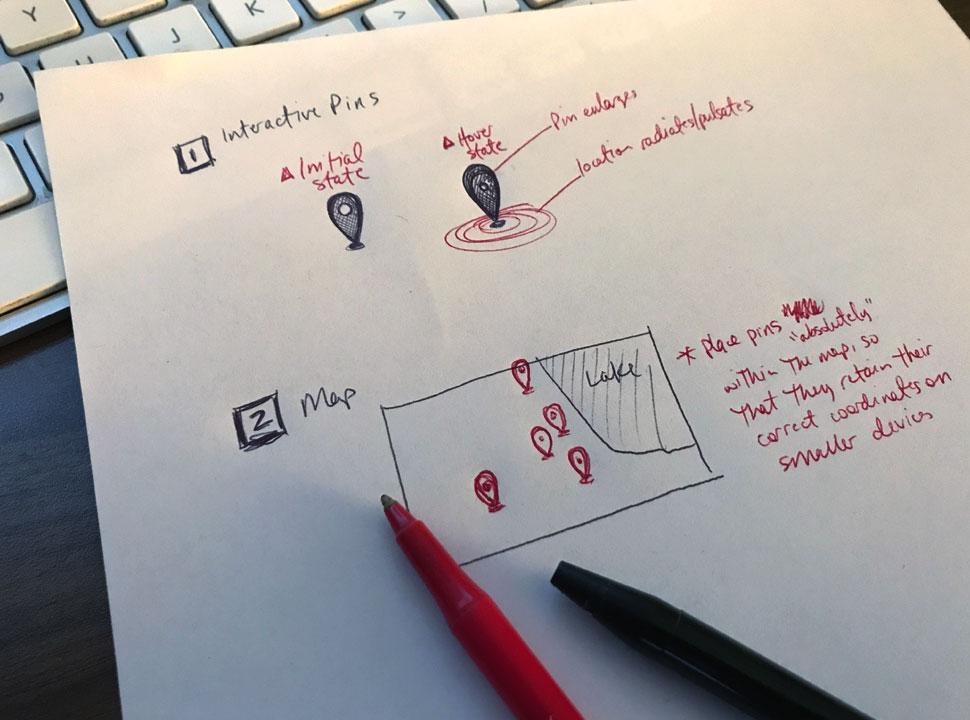 Y
J
K
>
1 Interactive Pins
Initial
state
Hover
state
Pin enlarges
location radiates/pulsates
2 Map
Lake
* Place pins
"absolutely"
within the map, so
that they retain their
correct coordinates on
smaller devices